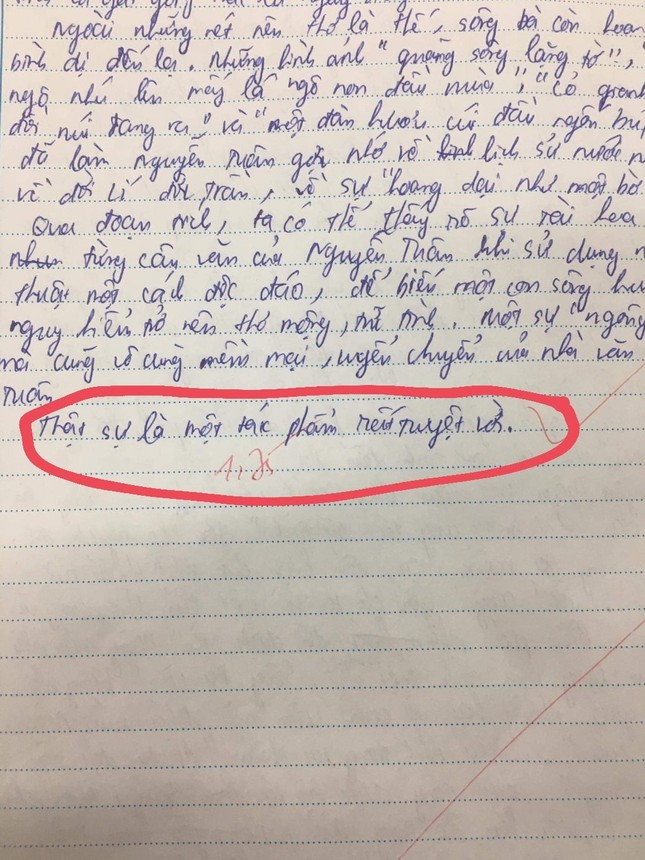 Ngoài những nét nên thơ là thế, sông Đà còn hoan
bình dị đến lạ. Những hình ảnh "quãng sông lặng tờ",
ngô nhú lên mấy lá ngô non đầu mùa", "cỏ gianh
đồi núi đang ra," và "một đàn hươu cúi đầu ngốn bú
đã làm Nguyễn Tuân gợi nhớ về lịch sử nước n
về đời Lí đời Trần, về sự "hoang dại như một bờ
Qua đoạn trích, ta có thể thấy rõ sự tài hoa
từng câu văn của Nguyễn Tuân khi sử dụng n
thuật một cách độc đáo, để biến một con sông hu
nguy hiểm trở nên thơ mộng, trữ tình. Một sự "ngông
mà cũng vô cùng mềm mại, uyển chuyển của nhà văn
Tuân
Thật sự là một tác phẩm rất tuyệt vời.